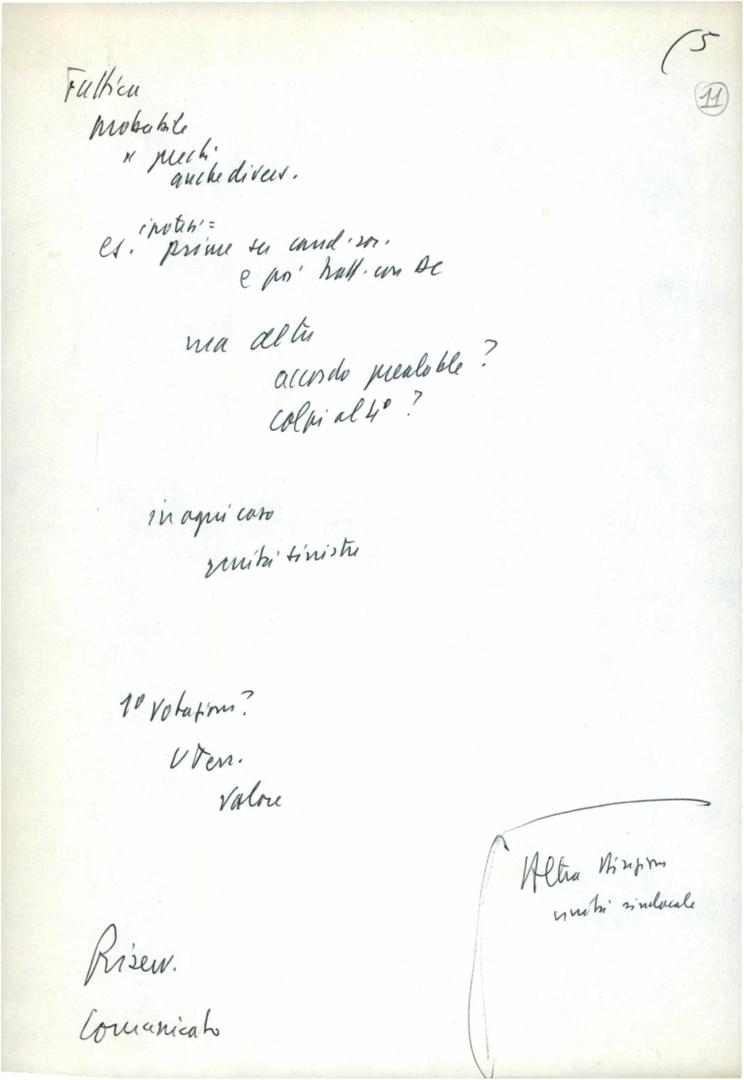 (5
11
Tattica
probabile
" pochi
anche divers.
ipotesi =
es. prima su candidat.
e poi tratt. con DC
ma altri
accordo prealabile?
colpi al 4º?
in ogni caso
unità sinistre
1º votazione?
Terr.
valore
Altra
unità sindacale
Riserv.
Comunicato